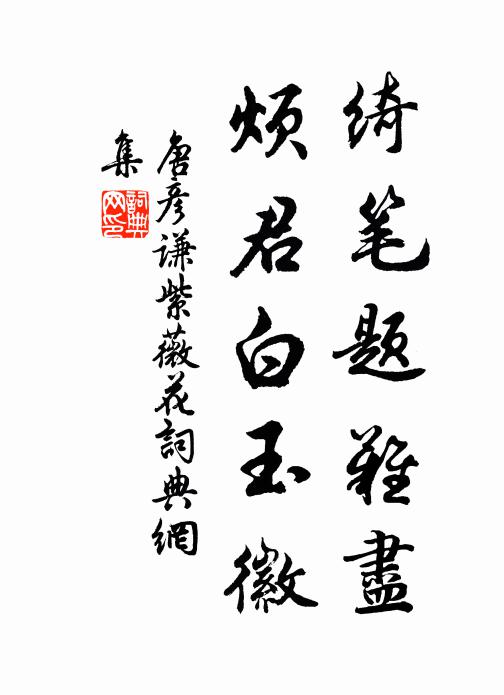 绮笔题难盡
烦君白玉徽
唐彦谦紫薇花詞典網
集
詞典
网印